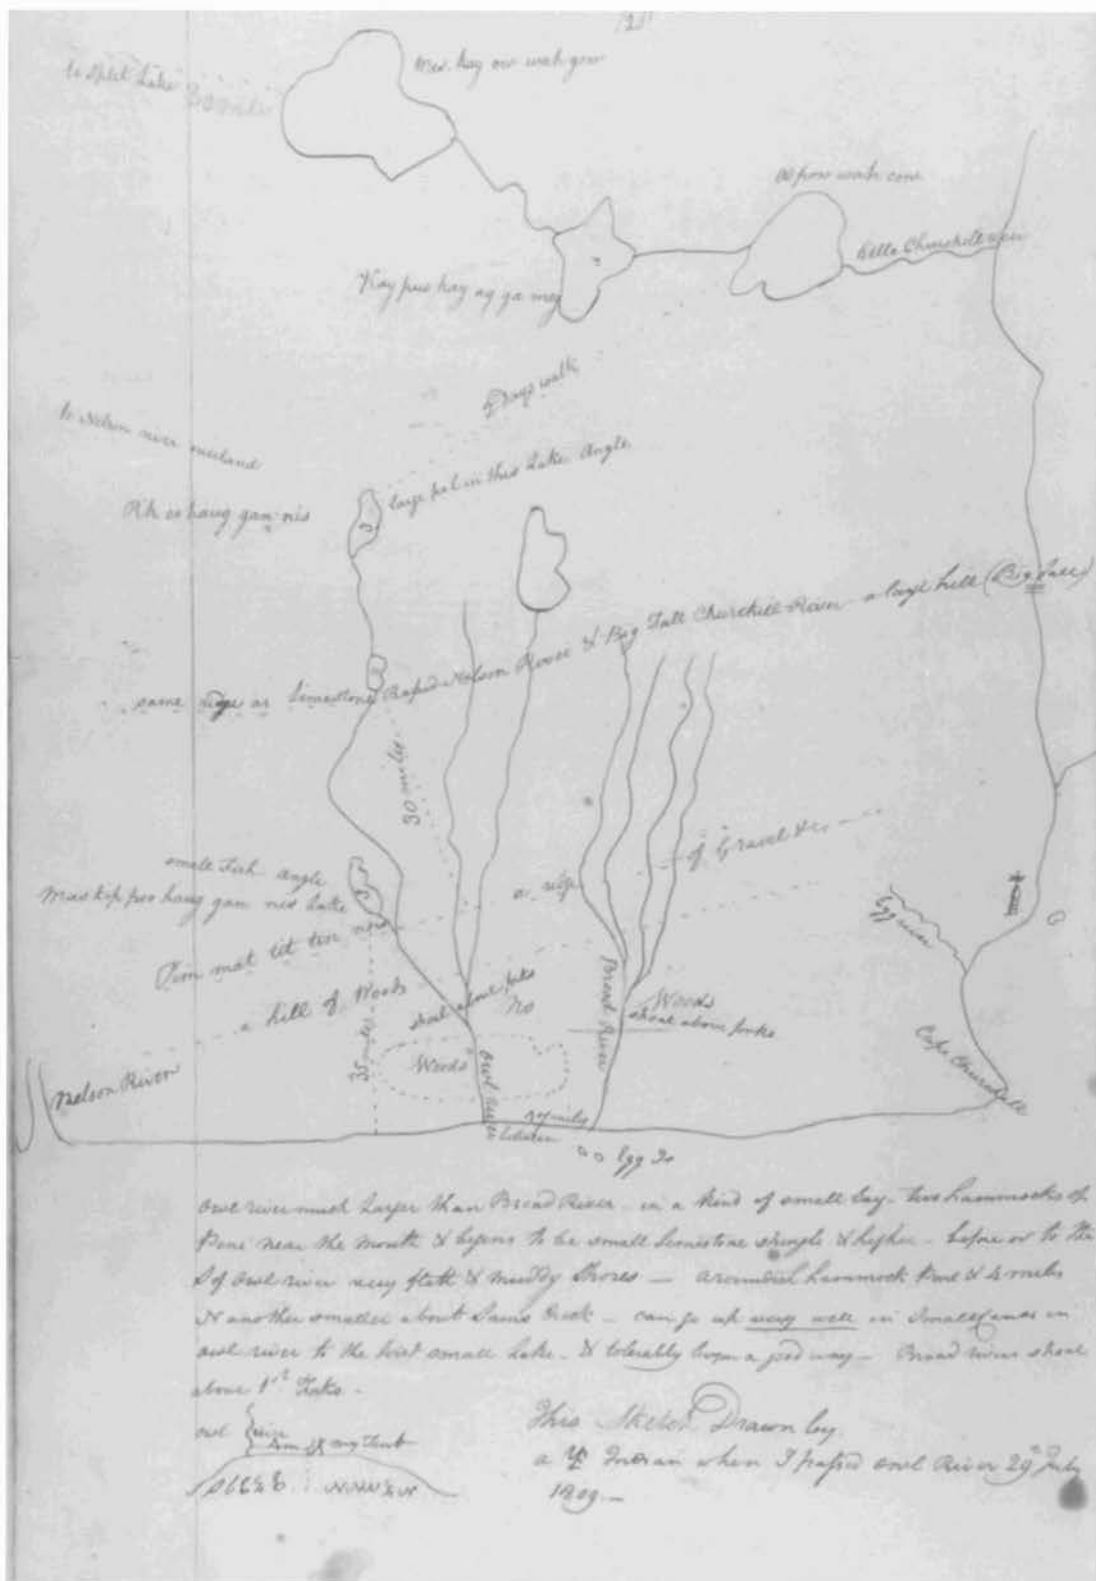 to Split Lake
kay ow wah gow
wah cow
Little Churchill river
Kay pus kay ag ga meg
Days walk
to Nelson river overland
large pol in this Lake Angle
gan nis
same ridge as limestone Rapid Nelson River & Big Fall Churchill River a large hill (Big Fall)
30 miles
a ridge
of Gravel &c
small Fish angle
haug gan nis Lake
Pim mat tit
a hill of Woods
shoal above forks
No
Woods
shoal above forks
Broad River
Egg river
35 miles
Woods
Owl River
Cape Churchill
Nelson River
miles
between
Egg Is
Owl river much larger than Broad River in a kind of small bay two hammocks of
Pine near the mouth & begins to be small limestone shingle & higher - before or to the
S of Owl river very flatt & muddy Shores — hammock Pine & 4 miles
N another smaller about Sams Creek - can go up very well in Small Canoes in
owl river to the first small Lake - & tolerably a good way - Broad river shoal
above 1st Forks -
owl river
my Tent
This Sketch Drawn by
a YF Indian when I passed Owl River 29th July
1809 —